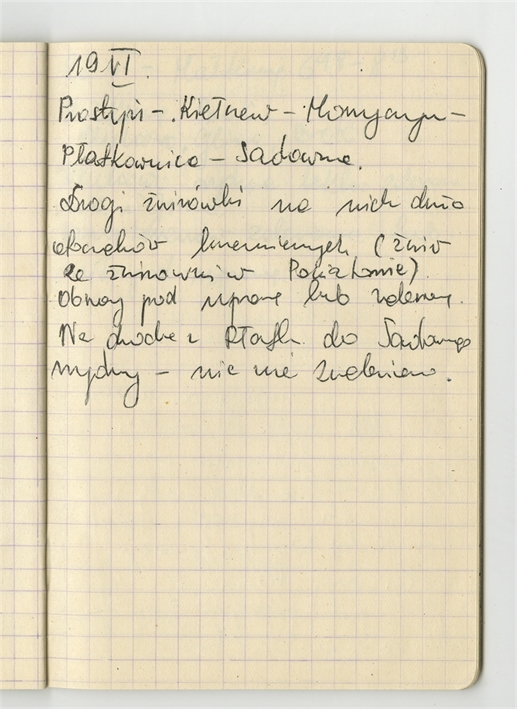 19 VI.
Prostyń - Kiełczew - Morzyczyn -
Płatkownica - Sadowne.
Drogi żwirówki na nich dużo
okruchów krzemiennych (żwir
ze żwirowni w
Obszary pod uprawę lub
Na drodze z Płatk. do Sadownego
wydmy - nic nie znaleziono.